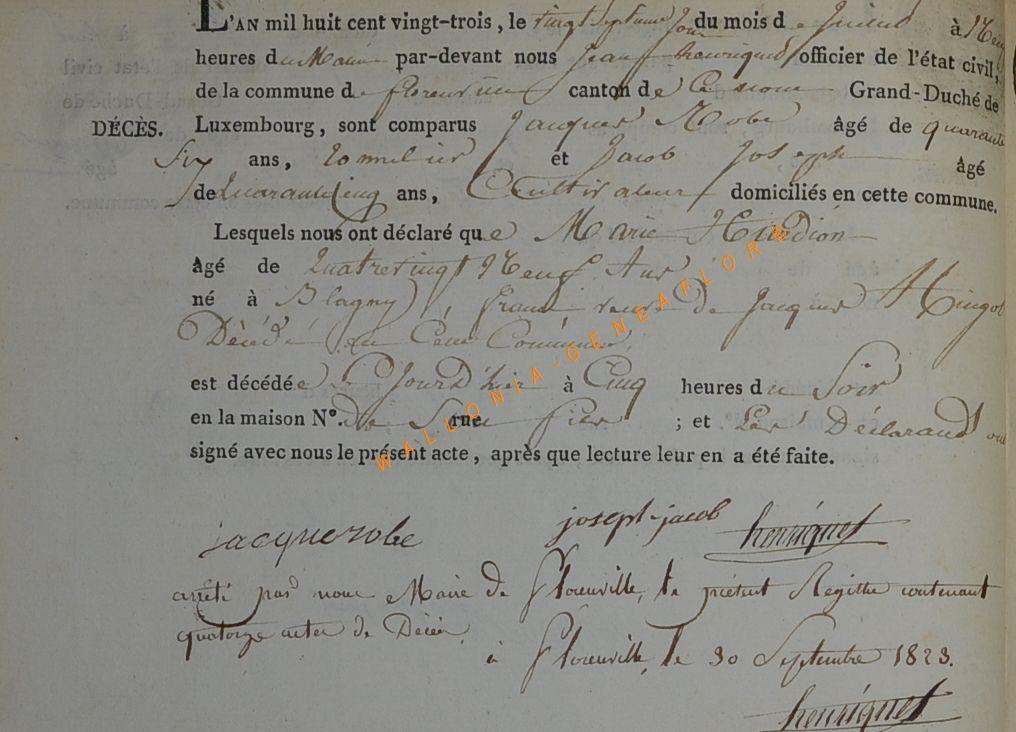 L'AN mil huit cent vingt-trois, le vingt Septieme Jour du mois de à Neuf
heures du Matin par-devant nous Jean henriquet officier de l'état civil,
de la commune de florenville canton de Grand-Duché de
DÉCÈS. Luxembourg, sont comparus Jacques Robe âgé de quarante
Six ans, et Jacob Joseph âgé
de Quarante Cinq ans, Cultivateur domiciliés en cette commune.
Lesquels nous ont déclaré que Marie Hurdion
âgé de Quatrevingt Neuf Ans
né à Blagny, veuve de Jacques Hingot
Décédé en Cette Commune,
est décédée Le Jour D'hier à Cinq heures du Soir
en la maison N°. de Son fils rue ; et Les Déclarans ont
signé avec nous le présent acte, après que lecture leur en a été faite.
jacque robe joseph jacob henriquet
arrêté par nous Maire de Florenville, le présent Registre contenant
quatorze actes de Décès
à Florenville, le 30 Septembre 1823.
henriquet
WALLONIA-GENEAFLORE